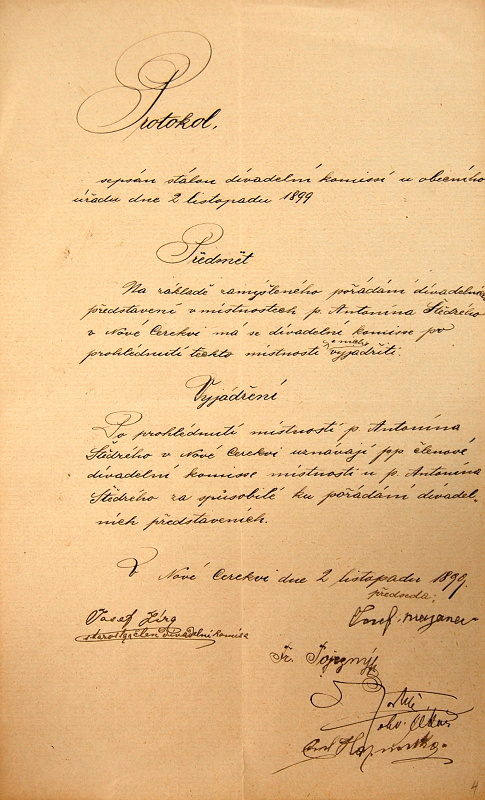 Protokol.
sepsán stálou divadelní komissí u obecního
úřadu dne 2 listopadu 1899
Předmět
Na základě zamýšleného pořádání divadelního
představení v místnostech p. Antonína Štědrého
v Nové Cerekvi má se divadelní komisse po
prohlédnutí těchto místností o nich vyjádřiti.
Vyjádření
Po prohlédnutí místností p. Antonína
Štědrého v Nové Cerekvi uznavají pp členové
divadelní komisse místnosti u p. Antonína
Štědrého za spůsobilé ku pořádání divadel-
ních představeních.
V Nové Cerekvi dne 2 listopadu 1899.
předseda:
Josef
Josef Jirg
starosta člen divadelní komise
Fr.
4